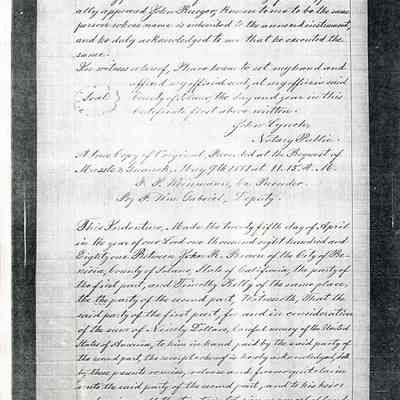 ally appeared John Kruger, known to me to be the same
person whose name is subscribed to the annexed instrument,
and he duly acknowledged to me that he executed the
same.
In witness whereof, I have hereunto set my hand and
affixed my official seal, at my office in said
(Seal) County of Solano, the day and year in this
Certificate first above written.
John Lynch,
Notary Public.
A true Copy of Original, Recorded at the Request of
May 9th 1881 at 11.15. A. M.
Co. Recorder
By Deputy.
This Indenture, Made the twenty fifth day of April
in the year of our Lord one thousand eight hundred and
Eighty one Between John R. Brown of the City of Be-
nicia, County of Solano, State of California, the party of
the first part, and Timothy Kelly of the same place,
the the party of the second part, Witnesseth, That the
said party of the first part, for and in consideration
of the sum of Ninety Dollars, lawful money of the United
States of America, to him in hand paid by the said party of
the second part, the receipt whereof is hereby acknowledged, doth
by these presents remise, release and forever quitclaim
unto the said party of the second part, and to his heirs